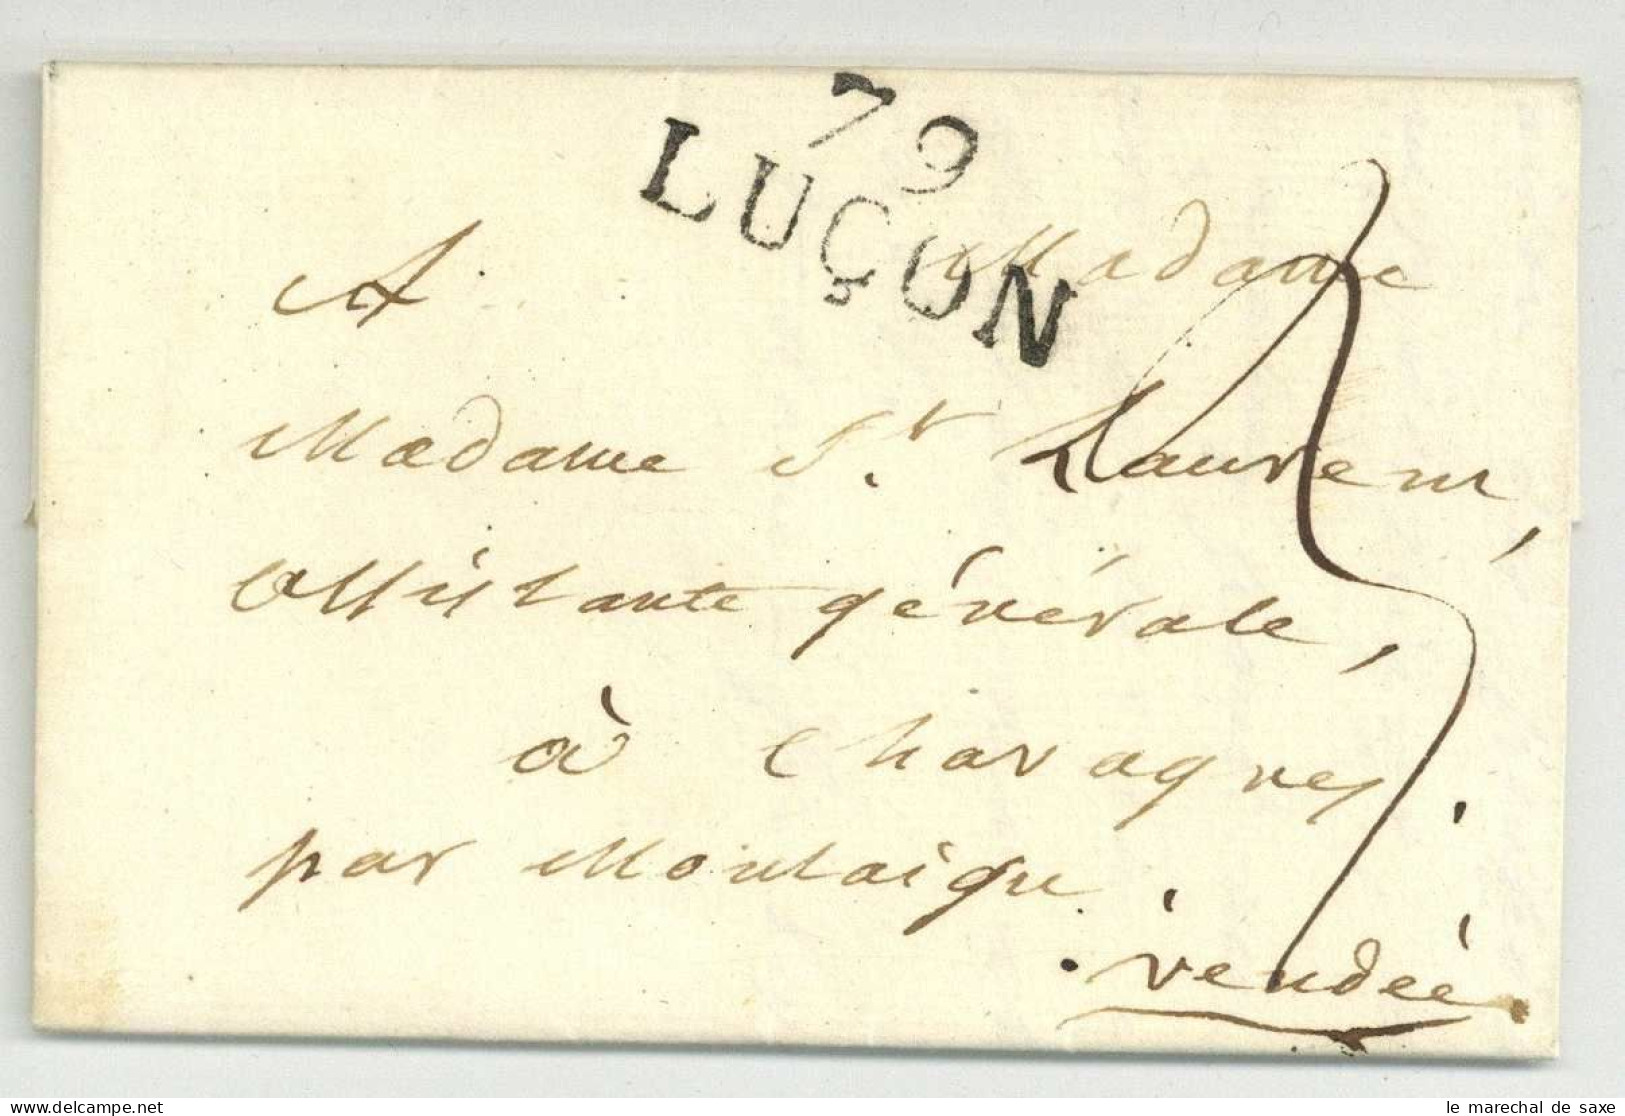 79
LUÇON
A Madame
Madame St. Laurent,
assistante générale,
à Chavagnes
par Montaigu.
vendée.
delcampe.net
le marechal de saxe